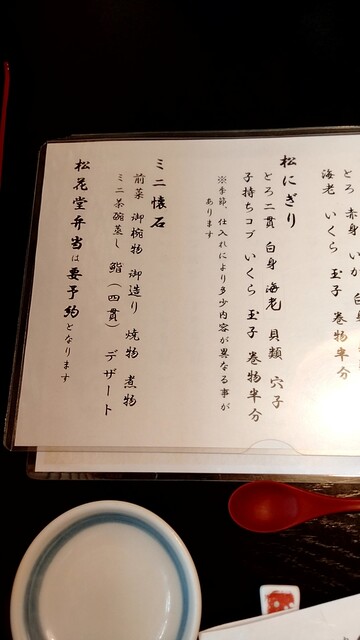 とろ 赤身 いか 白身
海老 いくら 玉子 巻物半分
松にぎり
とろ二貫 白身 海老 貝類 穴子
子持ちコブ いくら 玉子 巻物半分
※季節、仕入れにより多少内容が異なる事が
あります
ミニ懐石
前菜 御椀物 御造り 焼物 煮物
ミニ茶碗蒸し 鮨（四貫） デザート
松花堂弁当は要予約となります